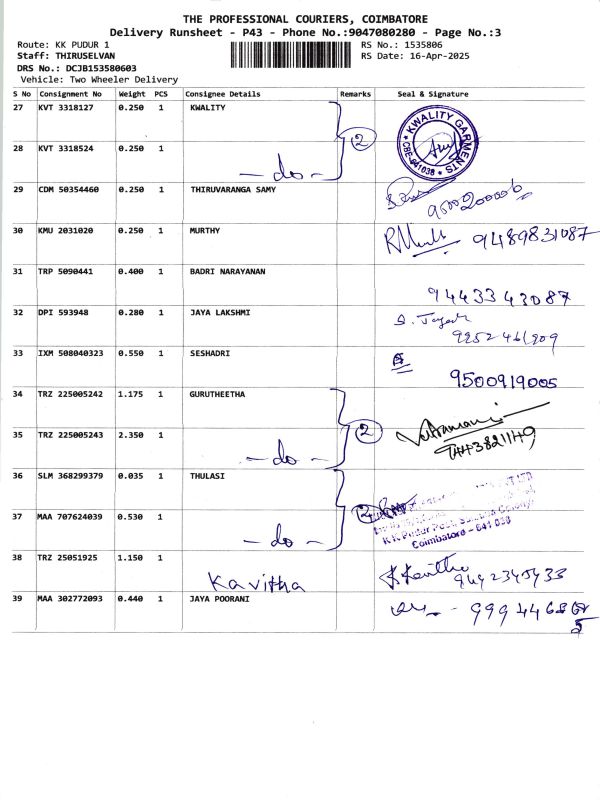 THE PROFESSIONAL COURIERS, COIMBATORE
Delivery Runsheet - P43 - Phone No.:9047080280 - Page No.:3
Route: KK PUDUR 1
RS No.: 1535806
Staff: THIRUSELVAN
RS Date: 16-Apr-2025
DRS No.: DCJB153580603
Vehicle: Two Wheeler Delivery
S No Consignment No Weight PCS Consignee Details Remarks Seal & Signature
27 KVT 3318127 0.250 1 KWALITY
2
KWALITY GARMENTS
CBE-641038
28 KVT 3318524 0.250 1
- do -
29 CDM 50354460 0.250 1 THIRUVARANGA SAMY
30 KMU 2031020 0.250 1 MURTHY
9489831087
31 TRP 5090441 0.400 1 BADRI NARAYANAN
9443343087
32 DPI 593948 0.280 1 JAYA LAKSHMI
33 IXM 508040323 0.550 1 SESHADRI
9500919005
34 TRZ 225005242 1.175 1 GURUTHEETHA
2
35 TRZ 225005243 2.350 1
- do -
9443821149
36 SLM 368299379 0.035 1 THULASI
2
37 MAA 707624039 0.530 1
- do -
K K Pudur Post,
Coimbatore - 641 038
38 TRZ 25051925 1.150 1
Kavitha
39 MAA 302772093 0.440 1 JAYA POORANI